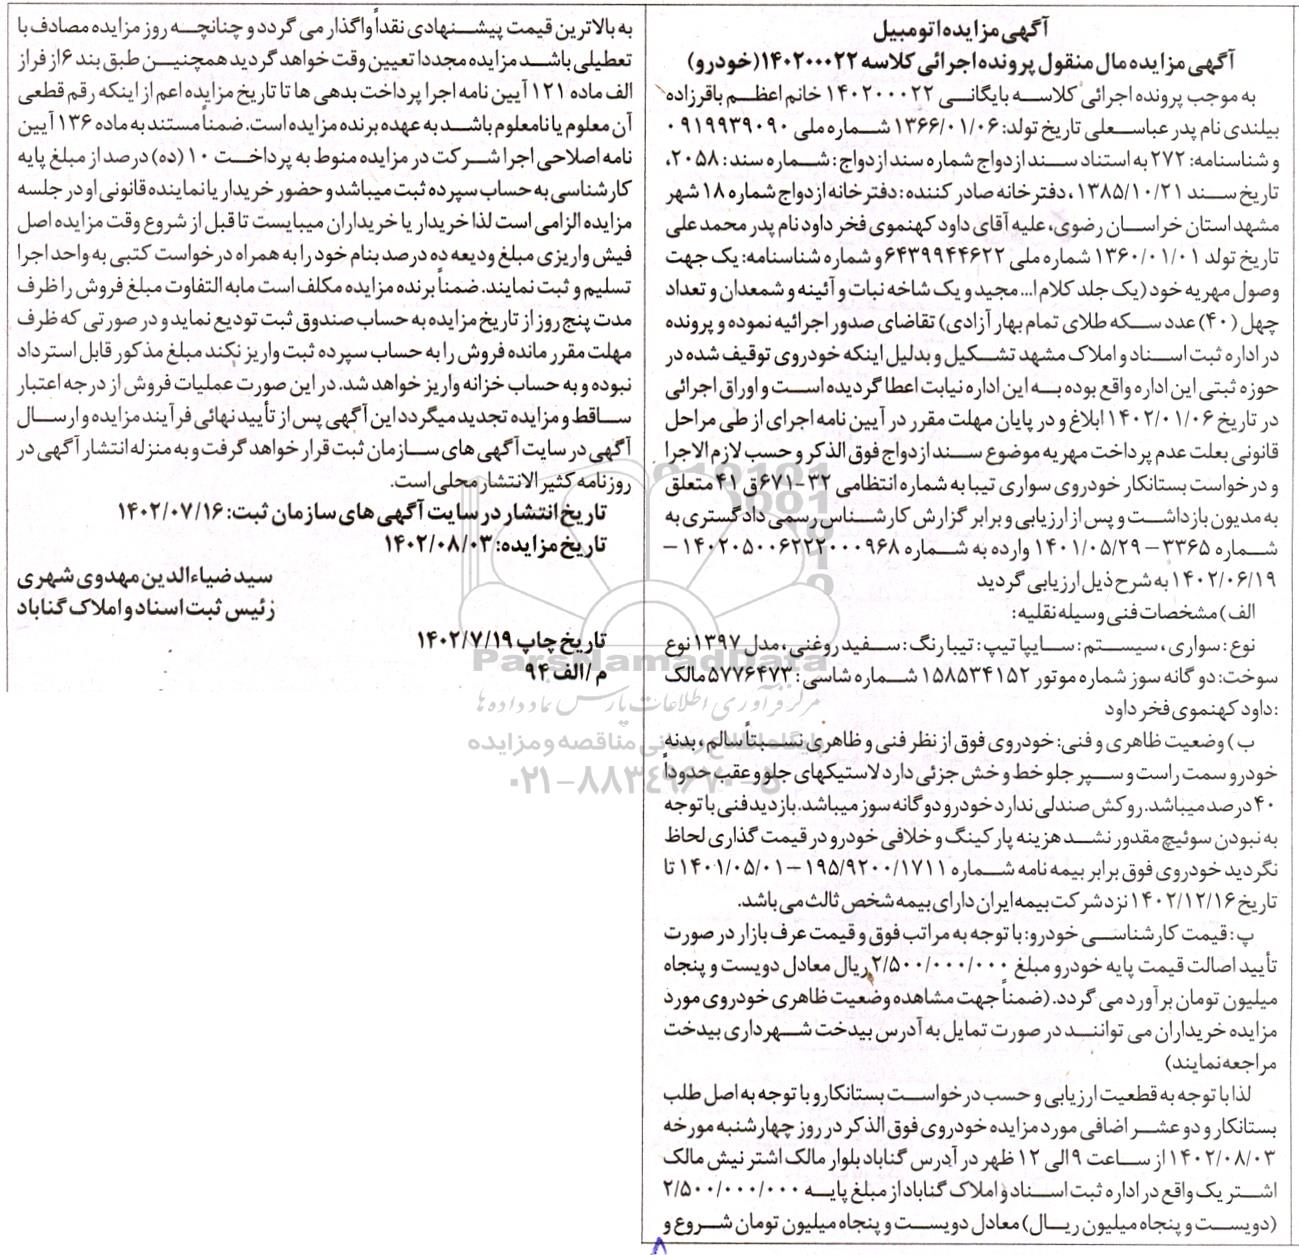 آگهی مزایده اتومبیل
آگهی مزایده مال منقول پرونده اجرائی کلاسه ۱۴۰۲۰۰۰۲۲ (خودرو)
به موجب پرونده اجرائی کلاسه بایگانی ۱۴۰۲۰۰۰۲۲ خانم اعظم باقرزاده
بیلندی نام پدر عباسعلی تاریخ تولد: ۱۳۶۶/۰۱/۰۶ شماره ملی ۰۹۱۹۹۳۹۰۹۰
و شناسنامه: ۲۷۲ به استناد سند ازدواج شماره سند ازدواج: شماره سند: ۲۰۵۸،
تاریخ سند ۱۳۸۵/۱۰/۲۱، دفترخانه صادر کننده: دفترخانه ازدواج شماره ۱۸ شهر
مشهد استان خراسان رضوی، علیه آقای داود کهنموی فخر داود نام پدر محمد علی
تاریخ تولد ۱۳۶۰/۰۱/۰۱ شماره ملی ۶۴۳۹۹۴۴۶۲۲ و شماره شناسنامه: یک جهت
وصول مهریه خود (یک جلد کلام ا... مجید و یک شاخه نبات و آئینه و شمعدان و تعداد
چهل (۴۰) عدد سکه طلای تمام بهار آزادی) تقاضای صدور اجرائیه نموده و پرونده
در اداره ثبت اسناد و املاک مشهد تشکیل و بدلیل اینکه خودروی توقیف شده در
حوزه ثبتی این اداره واقع بوده به این اداره نیابت اعطا گردیده است و اوراق اجرائی
در تاریخ ۱۴۰۲/۰۱/۰۶ ابلاغ و در پایان مهلت مقرر در آیین نامه اجرای از طی مراحل
قانونی بعلت عدم پرداخت مهریه موضوع سند ازدواج فوق الذکر و حسب لازم الاجرا
و درخواست بستانکار خودروی سواری تیبا به شماره انتظامی ۳۲-۶۷۱ق۴۱ متعلق
به مدیون بازداشت و پس از ارزیابی و برابر گزارش کارشناس رسمی دادگستری به
شماره ۳۳۶۵ – ۱۴۰۱/۰۵/۲۹ وارده به شماره ۱۴۰۲۰۵۰۰۶۲۲۲۰۰۰۹۶۸ –
۱۴۰۲/۰۶/۱۹ به شرح ذیل ارزیابی گردید
الف) مشخصات فنی وسیله نقلیه:
نوع: سواری، سیستم: سایپا تیپ: تیبا رنگ: سفید روغنی، مدل ۱۳۹۷ نوع
سوخت: دوگانه سوز شماره موتور ۱۵۸۵۳۴۱۵۲ شماره شاسی: ۵۷۷۶۴۷۳ مالک
:داود کهنموی فخر داود
ب) وضعیت ظاهری و فنی: خودروی فوق از نظر فنی و ظاهری نسبتاً سالم، بدنه
خودرو سمت راست و سپر جلو خط و خش جزئی دارد لاستیکهای جلو و عقب حدوداً
۴۰ درصد میباشد. روکش صندلی ندارد خودرو دوگانه سوز میباشد. بازدید فنی با توجه
به نبودن سوئیچ مقدور نشد هزینه پارکینگ و خلافی خودرو در قیمت گذاری لحاظ
نگردید خودروی فوق برابر بیمه نامه شماره ۱۹۵/۹۲۰۰/۱۷۱۱ – ۱۴۰۱/۰۵/۰۱ تا
تاریخ ۱۴۰۲/۱۲/۱۶ نزد شرکت بیمه ایران دارای بیمه شخص ثالث می باشد.
پ: قیمت کارشناسی خودرو: با توجه به مراتب فوق و قیمت عرف بازار در صورت
تأیید اصالت قیمت پایه خودرو مبلغ ۲/۵۰۰/۰۰۰/۰۰۰ ریال معادل دویست و پنجاه
میلیون تومان برآورد می گردد. (ضمناً جهت مشاهده وضعیت ظاهری خودروی مورد
مزایده خریداران می توانند در صورت تمایل به آدرس بیدخت شهرداری بیدخت
مراجعه نمایند)
لذا با توجه به قطعیت ارزیابی و حسب درخواست بستانکار و با توجه به اصل طلب
بستانکار و دو عشر اضافی مورد مزایده خودروی فوق الذکر در روز چهارشنبه مورخه
۱۴۰۲/۰۸/۰۳ از ساعت ۹ الی ۱۲ ظهر در آدرس گناباد بلوار مالک اشتر نبش مالک
اشتر یک واقع در اداره ثبت اسناد و املاک گناباد از مبلغ پایه ۲/۵۰۰/۰۰۰/۰۰۰
(دویست و پنجاه میلیون ریال) معادل دویست و پنجاه میلیون تومان شروع و
به بالاترین قیمت پیشنهادی نقداً واگذار می گردد و چنانچه روز مزایده مصادف با
تعطیلی باشد مزایده مجددا تعیین وقت خواهد گردید همچنین طبق بند ۶ از فراز
الف ماده ۱۲۱ آیین نامه اجرا پرداخت بدهی ها تا تاریخ مزایده اعم از اینکه رقم قطعی
آن معلوم یا نامعلوم باشد به عهده برنده مزایده است. ضمناً مستند به ماده ۱۳۶ آیین
نامه اصلاحی اجرا شرکت در مزایده منوط به پرداخت ۱۰ (ده) درصد از مبلغ پایه
کارشناسی به حساب سپرده ثبت میباشد و حضور خریدار یا نماینده قانونی او در جلسه
مزایده الزامی است لذا خریدار یا خریداران میبایست تا قبل از شروع وقت مزایده اصل
فیش واریزی مبلغ ودیعه ده درصد بنام خود را به همراه درخواست کتبی به واحد اجرا
تسلیم و ثبت نمایند. ضمناً برنده مزایده مکلف است مابه التفاوت مبلغ فروش را ظرف
مدت پنج روز از تاریخ مزایده به حساب صندوق ثبت تودیع نماید و در صورتی که ظرف
مهلت مقرر مانده فروش را به حساب سپرده ثبت واریز نکند مبلغ مذکور قابل استرداد
نبوده و به حساب خزانه واریز خواهد شد. در این صورت عملیات فروش از درجه اعتبار
ساقط و مزایده تجدید میگردد این آگهی پس از تأیید نهائی فرآیند مزایده و ارسال
آگهی در سایت آگهی های سازمان ثبت قرار خواهد گرفت و به منزله انتشار آگهی در
روزنامه کثیر الانتشار محلی است.
تاریخ انتشار در سایت آگهی های سازمان ثبت: ۱۴۰۲/۰۷/۱۶
تاریخ مزایده: ۱۴۰۲/۰۸/۰۳
سید ضیاء الدین مهدوی شهری
رئیس ثبت اسناد و املاک گناباد
تاریخ چاپ ۱۴۰۲/۷/۱۹
م/الف ۹۴
ParsNamadData
مرکز فرآوری اطلاعات پارس نماد داده ها
پایگاه اطلاع رسانی مناقصه و مزایده
۰۲۱-۸۸۳۴۹۶۷۰-۵
۸